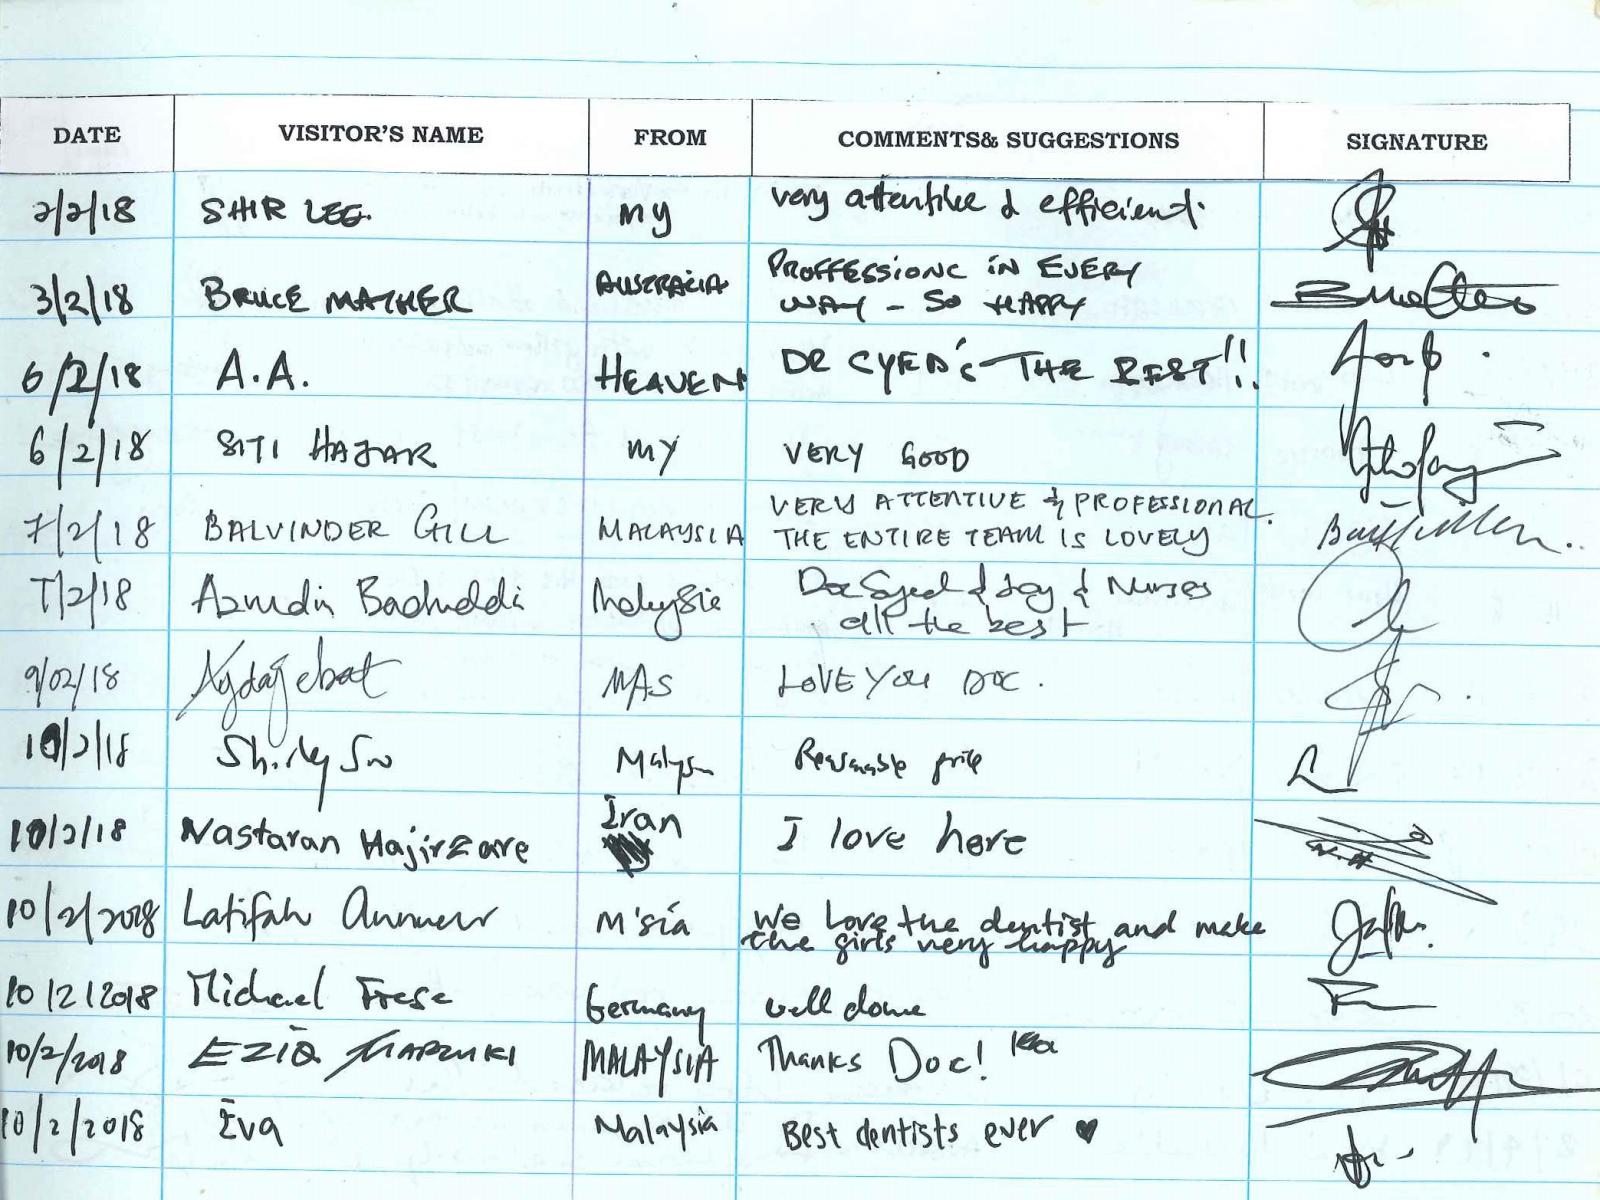 DATE VISITOR'S NAME FROM COMMENTS& SUGGESTIONS SIGNATURE
2/2/18 SHIR LEE. MY very attentive & efficient.
3/2/18 BRUCE MATHER AUSTRALIA PROFFESSIONL IN EVERY
WAY - SO HAPPY
6/2/18 A.A. HEAVEN DR SYED'S THE BEST!!
6/2/18 SITI HAJAR MY VERY GOOD
7/2/18 BALVINDER GILL MALAYSIA VERY ATTENTIVE & PROFESSIONAL.
THE ENTIRE TEAM IS LOVELY
7/2/18 Azrudin Malaysia Doc Syed & Joy & Nurses
all the best
9/02/18 MAS LOVE YOU DOC.
10/2/18 Shirley Malaysia Reasonable price
10/2/18 Nastaran Hajirzare Iran I love here
10/2/2018 Latifah M'sia We love the dentist and make
the girls very happy
10/2/2018 Michael Frese Germany well done
10/2/2018 EZIA MARZUKI MALAYSIA Thanks Doc!
10/2/2018 Eva Malaysia Best dentists ever ♥